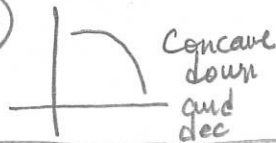 Concave
down
and
dec